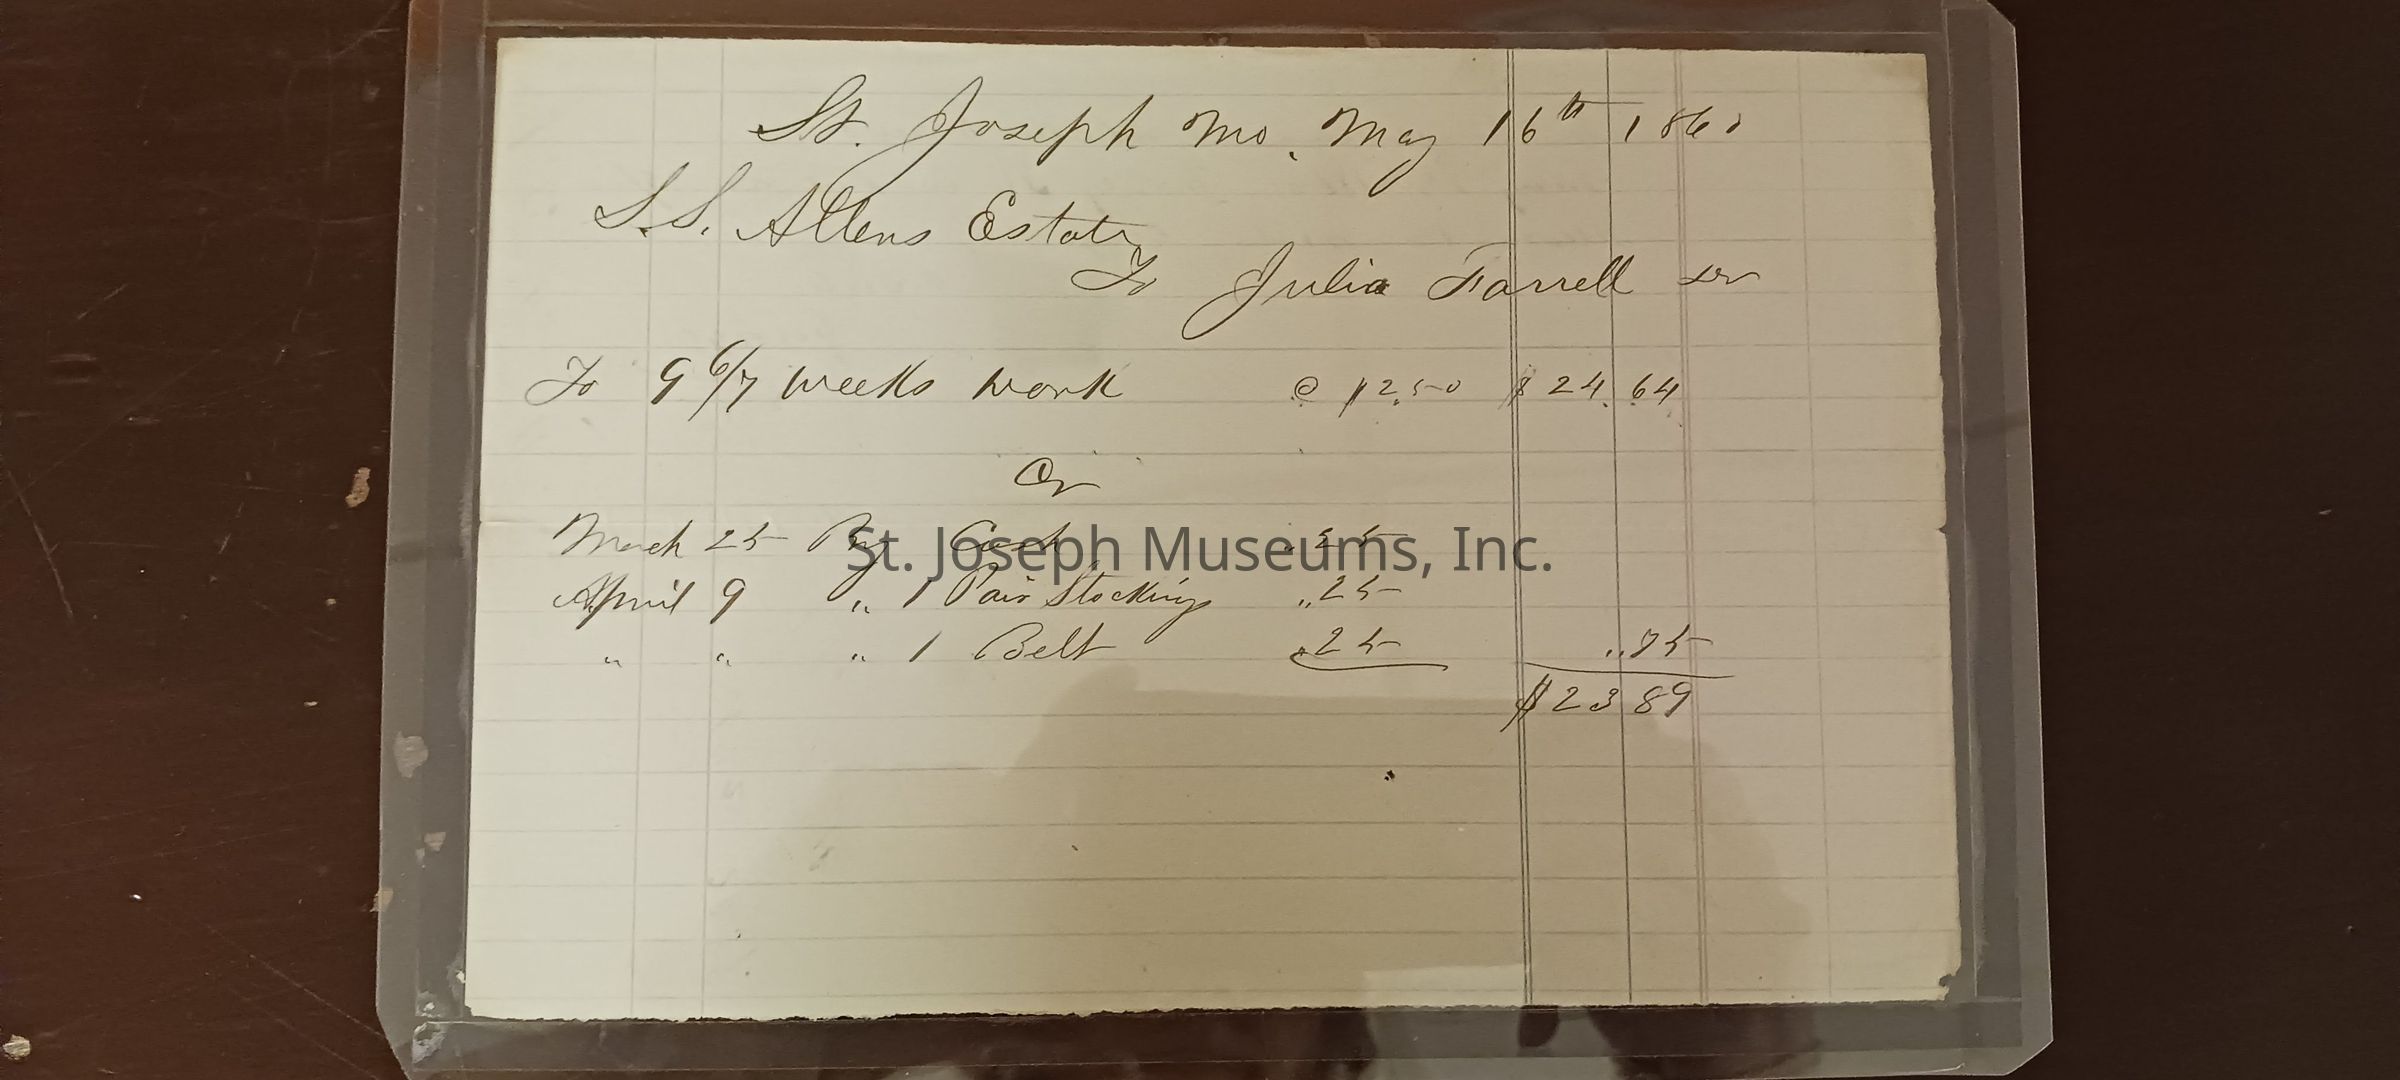 St. Joseph Mo. May 16th 1860
S.S. Allens Estate
To Julia Farrell Dr
To 9 6/7 weeks work @ $2.50 $24.64
Cr
March 25 By Cash .25
April 9 " 1 Pair Stockings "25
" " " 1 Belt .25 "75
$23 89
St. Joseph Museums, Inc.